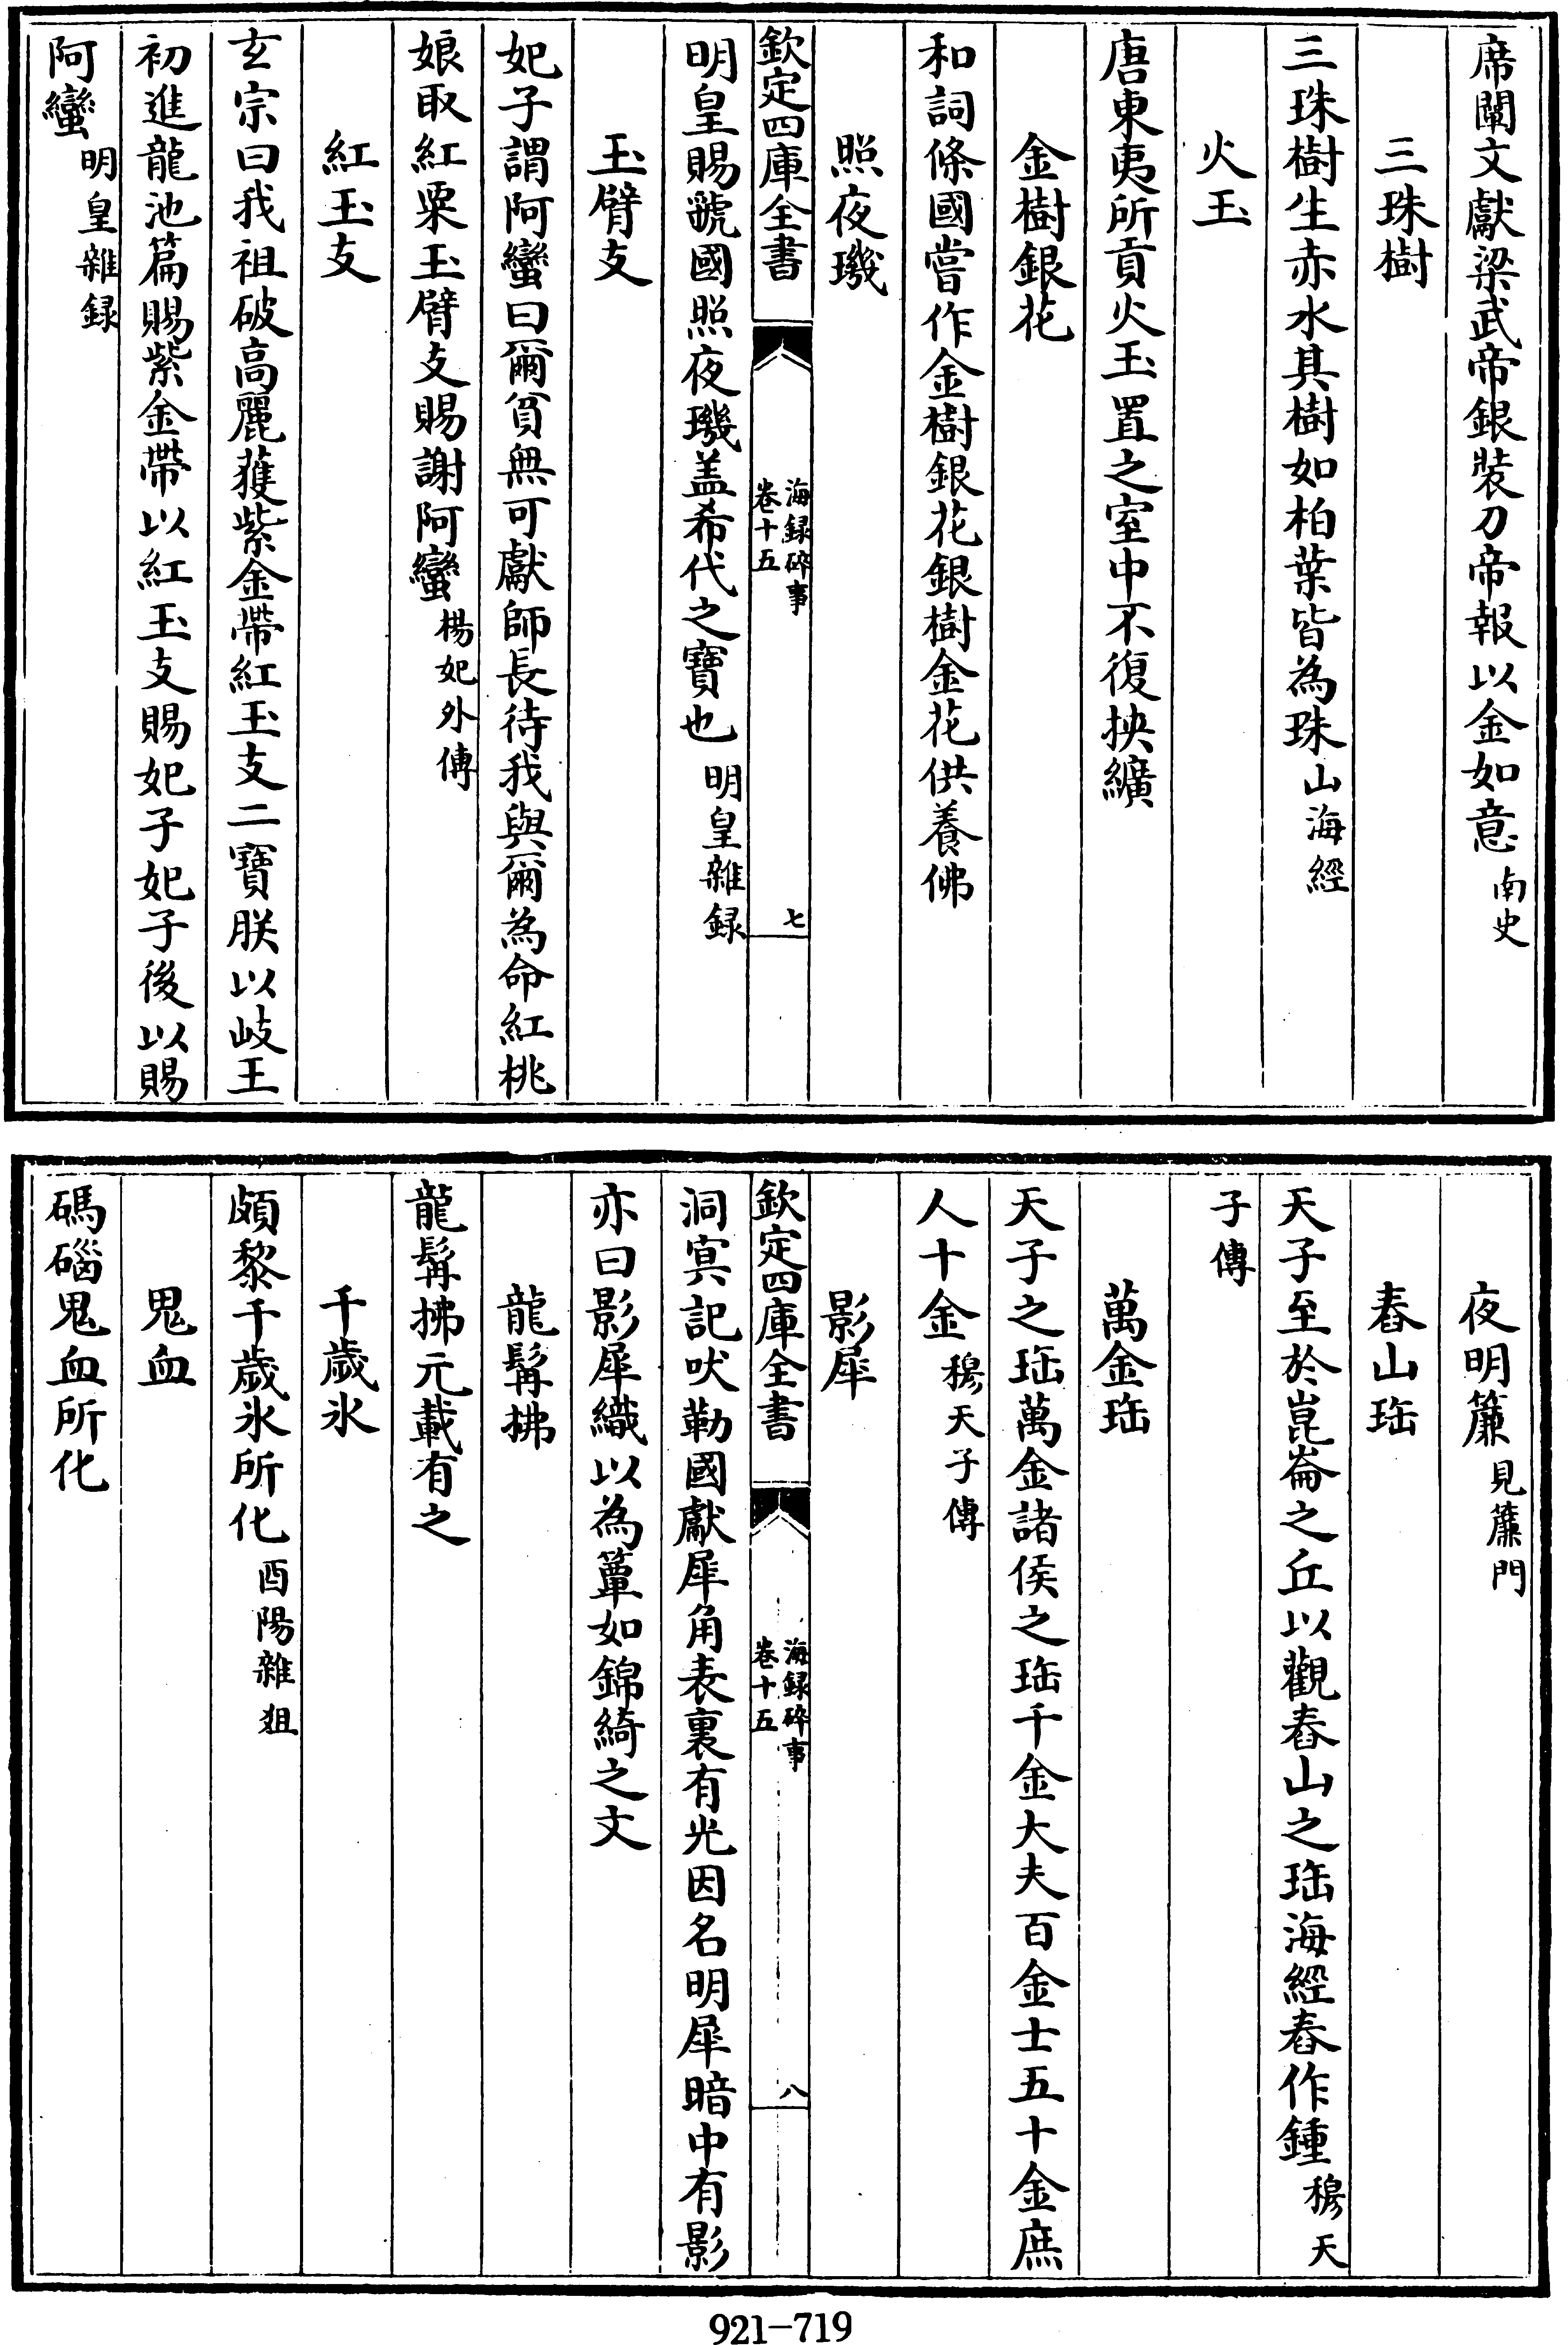 席闡文獻梁武帝銀裝刀帝報以金如意南史
三珠樹
三珠樹生赤水其樹如柏葉皆為珠山海經
火玉
唐東夷所貢火玉置之室中不復挾纊
金樹銀花
和訶條國嘗作金樹銀花銀樹金花供養佛
照夜璣
欽定四庫全書
海録碎事
卷十五
七
明皇賜虢國照夜璣盖希代之寶也明皇雜録
玉臂支
妃子謂阿蠻曰爾貧無可獻師長待我與爾為命紅桃
娘取紅粟玉臂支賜謝阿蠻楊妃外傳
紅玉支
玄宗曰我祖破高麗獲紫金帶紅玉支二寶朕以岐王
初進龍池篇賜紫金帶以紅玉支賜妃子妃子後以賜
阿蠻明皇雜録
夜明簾見簾門
舂山珤
天子至於崑崙之丘以觀舂山之珤海經舂作鍾穆天
子傳
萬金珤
天子之珤萬金諸侯之珤千金大夫百金士五十金庶
人十金穆天子傳
影犀
欽定四庫全書
海録碎事
卷十五
八
洞冥記吠勒國獻犀角表裏有光因名明犀暗中有影
亦曰影犀織以為簟如錦綺之文
龍髯拂
龍髯拂元載有之
千歲氷
頗黎千歲氷所化酉陽雜俎
鬼血
碼碯鬼血所化
921-719